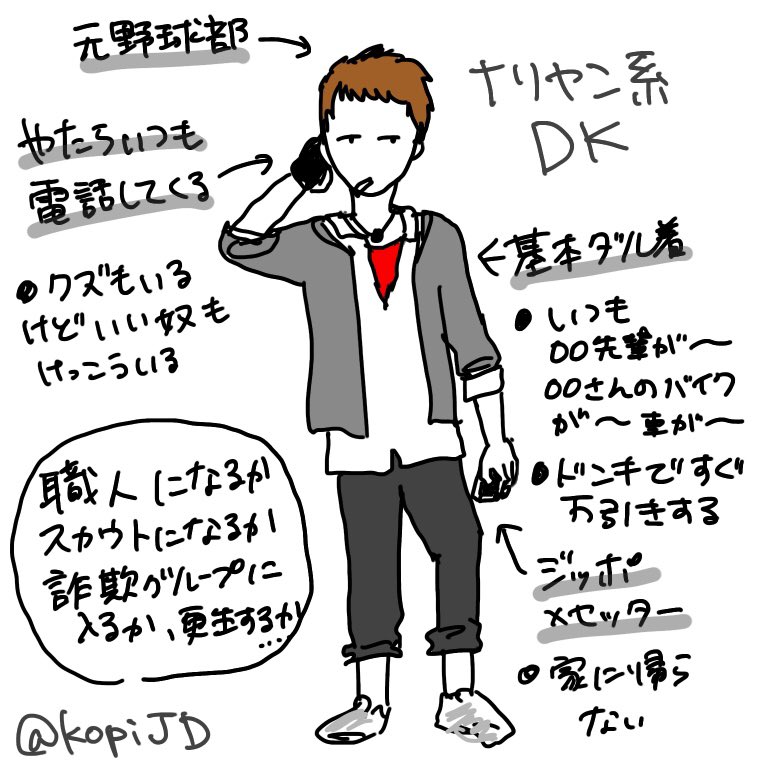 元野球部
ナリヤン系
DK
やたらいつも
電話してくる
●クズもいる
けどいい奴も
けっこういる
基本ダル着
●いつも
〇〇先輩が〜
〇〇さんのバイク
が〜 車が〜
●ドンキですぐ
万引きする
ジッポ
×セッター
●家に帰ら
ない
職人になるか
スカウトになるか
詐欺グループに
入るか、更生するか…
@kopiJD